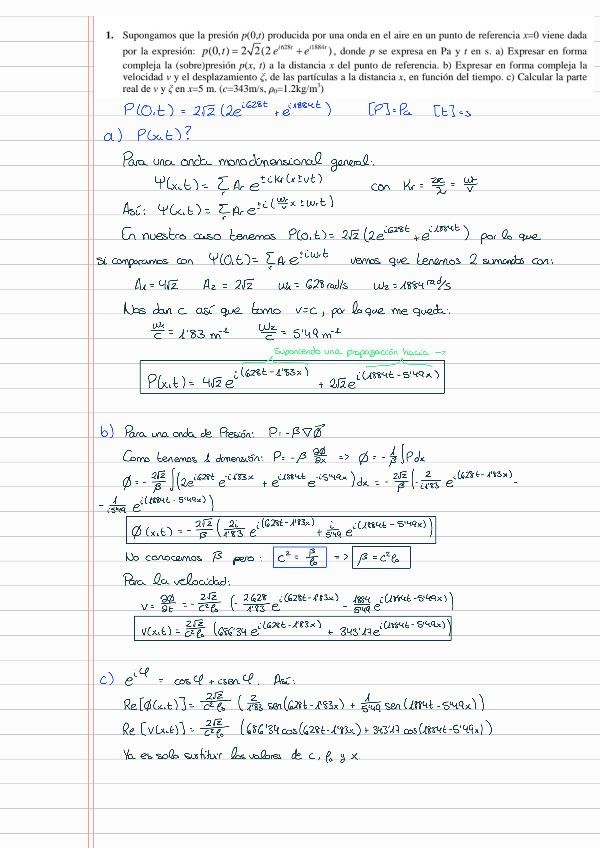 1. Supongamos que la presión p(0,t) producida por una onda en el aire en un punto de referencia x=0 viene dada
por la expresión: p(0,t) = 2√2(2 e^{i628t} + e^{i1884t}), donde p se expresa en Pa y t en s. a) Expresar en forma
compleja la (sobre)presión p(x, t) a la distancia x del punto de referencia. b) Expresar en forma compleja la
velocidad v y el desplazamiento ξ, de las partículas a la distancia x, en función del tiempo. c) Calcular la parte
real de v y ξ en x=5 m. (c=343m/s, ρ₀=1.2kg/m³)
P(0,t) = 2√2 (2e^{i628t} + e^{i1884t}) [P]=Pa [t]=s
a) P(x,t)?
Para una onda monodimensional general:
Ψ(x,t) = Σ_r A_r e^{±i K_r (x±vt)} con K_r = 2π/λ = ω_r/v
Así: Ψ(x,t) = Σ_r A_r e^{±i(ω_r/v x ± ω_r t)}
En nuestro caso tenemos P(0,t) = 2√2 (2e^{i628t} + e^{i1884t}) por lo que
si comparamos con Ψ(0,t) = Σ_r A_r e^{±iω_r t} vemos que tenemos 2 sumandos con:
A₁ = 4√2 A₂ = 2√2 ω₁ = 628 rad/s ω₂ = 1884 rad/s
Nos dan c así que tomo v=c, por lo que me queda:
ω₁/c = 1'83 m⁻¹ ω₂/c = 5'49 m⁻¹
Suponiendo una propagación hacia →
P(x,t) = 4√2 e^{i(628t - 1'83x)} + 2√2 e^{i(1884t - 5'49x)}
b) Para una onda de Presión: P = -β ∇Φ
Como tenemos 1 dimensión: P = -β ∂Φ/∂x => Φ = -1/β ∫P dx
Φ = -2√2/β ∫(2e^{i628t} e^{-i1'83x} + e^{i1884t} e^{-i5'49x}) dx = -2√2/β (-2/i1'83 e^{i(628t - 1'83x)} -
- 1/i5'49 e^{i(1884t - 5'49x)})
Φ(x,t) = -2√2/β (2i/1'83 e^{i(628t - 1'83x)} + i/5'49 e^{i(1884t - 5'49x)})
No conocemos β pero: c² = β/ρ₀ => β = c²ρ₀
Para la velocidad:
v = ∂Φ/∂t = -2√2/c²ρ₀ (-2·628/1'83 e^{i(628t - 1'83x)} - 1884/5'49 e^{i(1884t - 5'49x)})
v(x,t) = 2√2/c²ρ₀ (686'34 e^{i(628t - 1'83x)} + 343'17 e^{i(1884t - 5'49x)})
c) e^{iφ} = cosφ + isenφ. Así:
Re[Φ(x,t)] = 2√2/c²ρ₀ (2/1'83 sen(628t - 1'83x) + 1/5'49 sen(1884t - 5'49x))
Re[v(x,t)] = 2√2/c²ρ₀ (686'34 cos(628t - 1'83x) + 343'17 cos(1884t - 5'49x))
Ya es solo sustituir los valores de c, ρ₀ y x